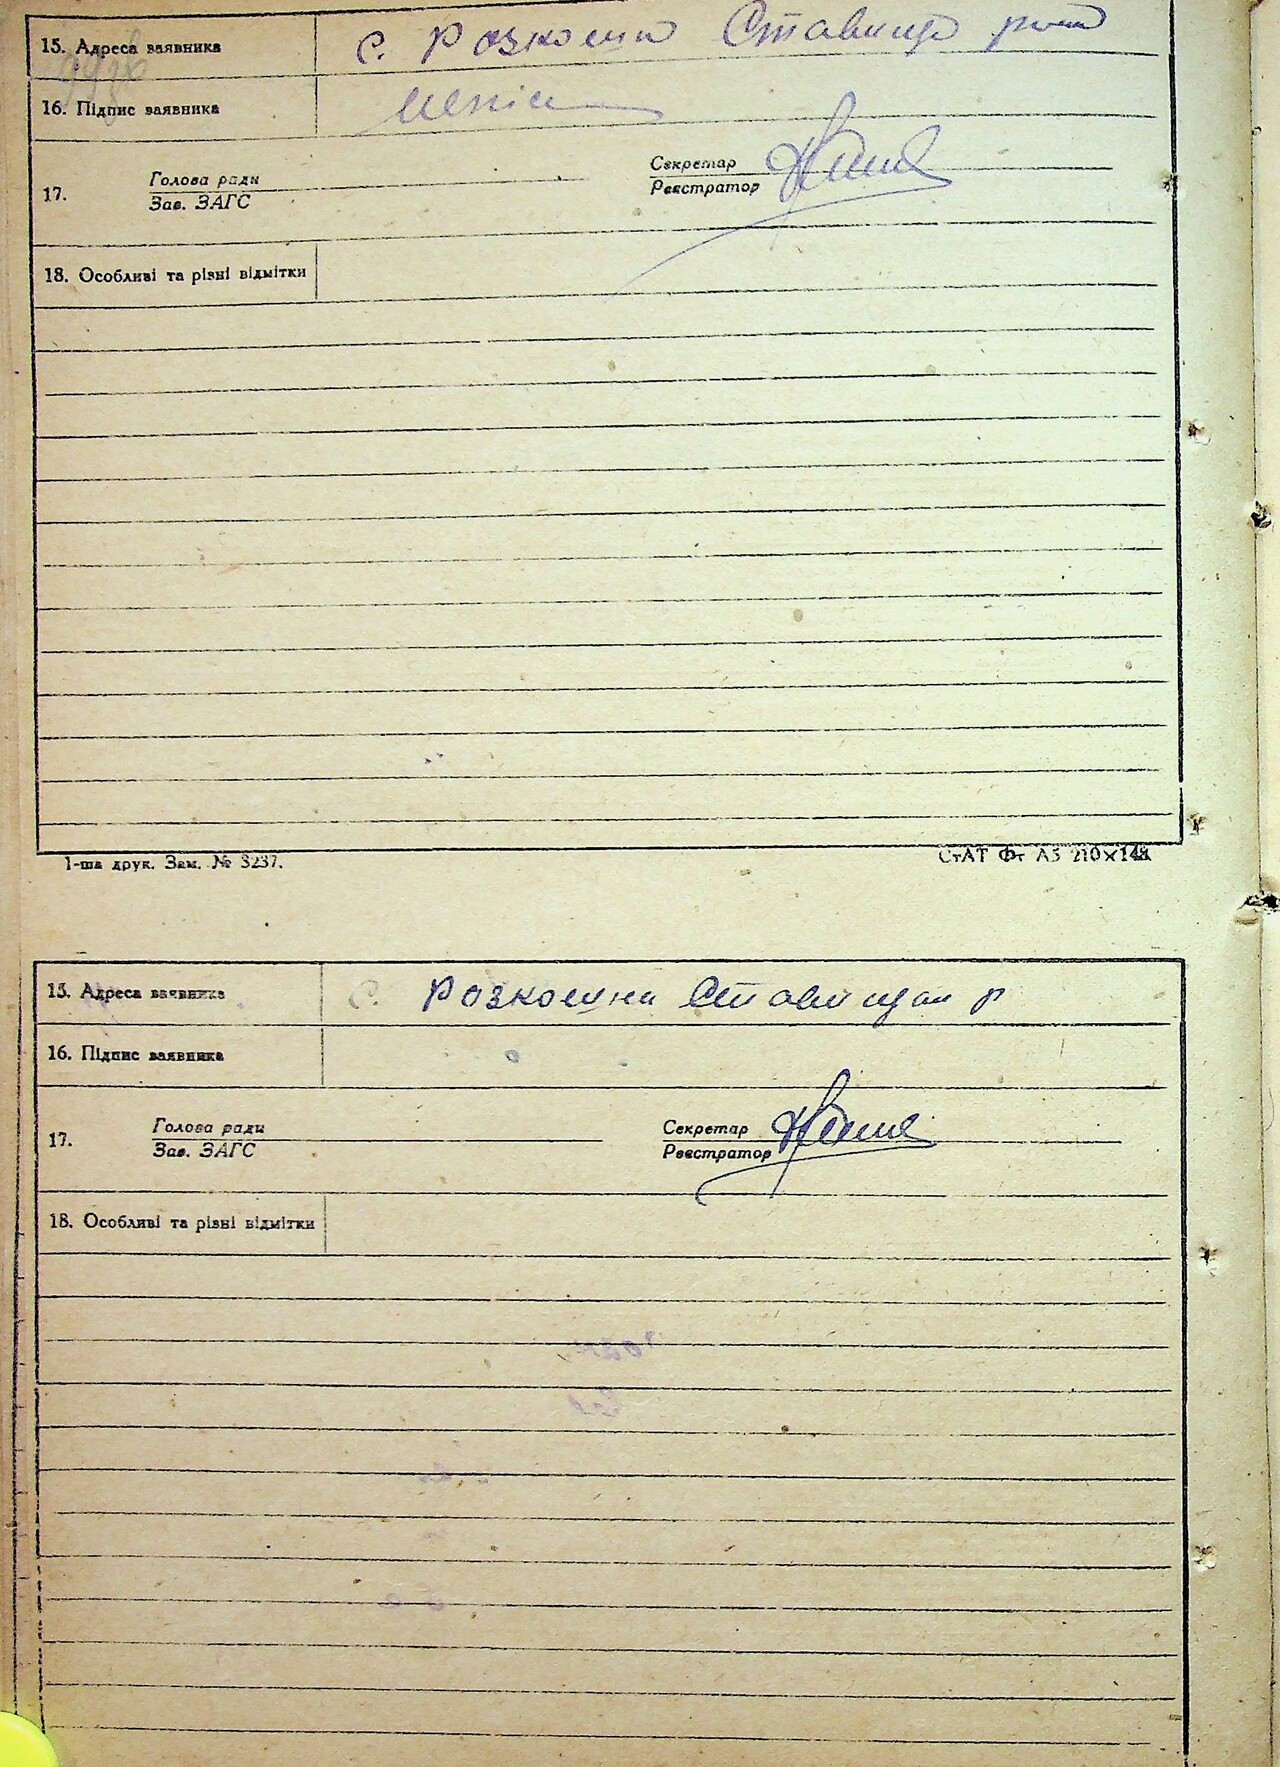 15. Адреса заявника с. Розкоши Ставище район
16. Підпис заявника
Голова ради Секретар
17.
Зав. ЗАГС Реєстратор
18. Особливі та різні відмітки
1-ша друк. Зам. № 3237. СтАТ Фт А5 210×148
15. Адреса заявника с. Розкошна Ставищан р
16. Підпис заявника
Голова ради Секретар
17.
Зав. ЗАГС Реєстратор
18. Особливі та різні відмітки